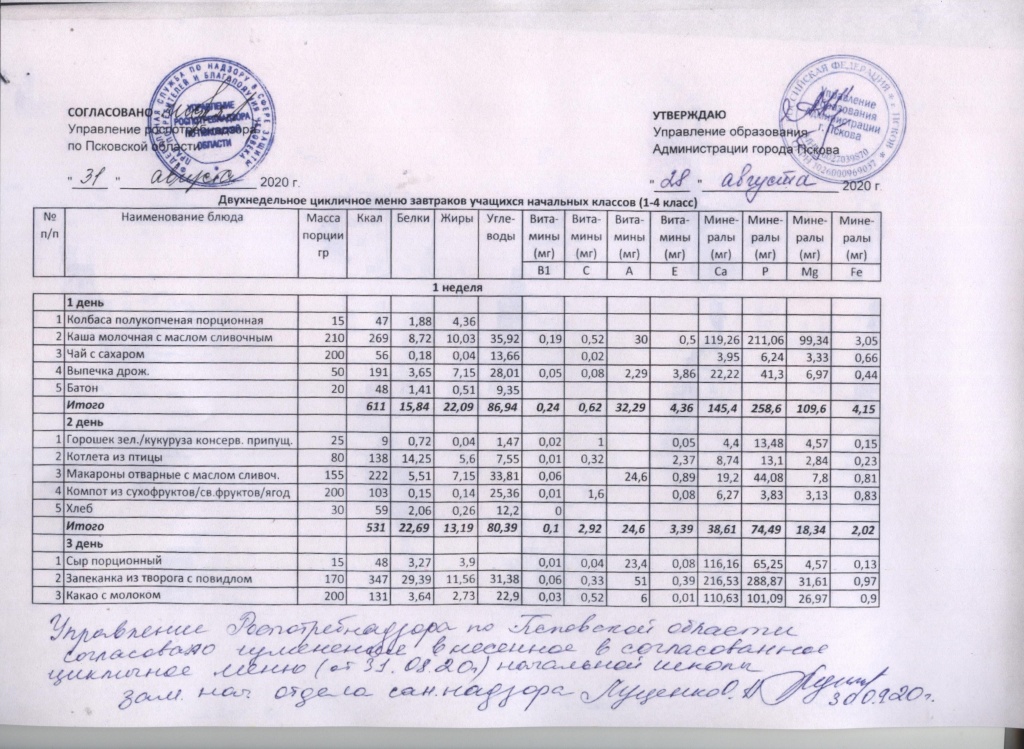 СОГЛАСОВАНО
Управление роспотребнадзора
по Псковской области
"31" августа 2020 г.
УТВЕРЖДАЮ
Управление образования
Администрации города Пскова
"28" августа 2020 г.
УПРАВЛЕНИЕ
РОСПОТРЕБНАДЗОРА
ПО ПСКОВСКОЙ
ОБЛАСТИ
Управление
образования
Администрации
г. Пскова
Двухнедельное цикличное меню завтраков учащихся начальных классов (1-4 класс)
№ п/п Наименование блюда Масса порции гр Ккал Белки Жиры Угле-воды Вита-мины (мг) Вита-мины (мг) Вита-мины (мг) Вита-мины (мг) Мине-ралы (мг) Мине-ралы (мг) Мине-ралы (мг) Мине-ралы (мг)
B1 C A E Ca P Mg Fe
1 неделя
1 день
1 Колбаса полукопченая порционная 15 47 1,88 4,36
2 Каша молочная с маслом сливочным 210 269 8,72 10,03 35,92 0,19 0,52 30 0,5 119,26 211,06 99,34 3,05
3 Чай с сахаром 200 56 0,18 0,04 13,66 0,02 3,95 6,24 3,33 0,66
4 Выпечка дрож. 50 191 3,65 7,15 28,01 0,05 0,08 2,29 3,86 22,22 41,3 6,97 0,44
5 Батон 20 48 1,41 0,51 9,35
Итого 611 15,84 22,09 86,94 0,24 0,62 32,29 4,36 145,4 258,6 109,6 4,15
2 день
1 Горошек зел./кукуруза консерв. припущ. 25 9 0,72 0,04 1,47 0,02 1 0,05 4,4 13,48 4,57 0,15
2 Котлета из птицы 80 138 14,25 5,6 7,55 0,01 0,32 2,37 8,74 13,1 2,84 0,23
3 Макароны отварные с маслом сливоч. 155 222 5,51 7,15 33,81 0,06 24,6 0,89 19,2 44,08 7,8 0,81
4 Компот из сухофруктов/св.фруктов/ягод 200 103 0,15 0,14 25,36 0,01 1,6 0,08 6,27 3,83 3,13 0,83
5 Хлеб 30 59 2,06 0,26 12,2 0
Итого 531 22,69 13,19 80,39 0,1 2,92 24,6 3,39 38,61 74,49 18,34 2,02
3 день
1 Сыр порционный 15 48 3,27 3,9 0,01 0,04 23,4 0,08 116,16 65,25 4,57 0,13
2 Запеканка из творога с повидлом 170 347 29,39 11,56 31,38 0,06 0,33 51 0,39 216,53 288,87 31,61 0,97
3 Какао с молоком 200 131 3,64 2,73 22,9 0,03 0,52 6 0,01 110,63 101,09 26,97 0,9
Управление Роспотребнадзора по Псковской области
согласовало изменение внесенное в согласованное
цикличное меню (от 31.08.20г) начальной школы
зам. нач. отдела сан.надзора Луценко